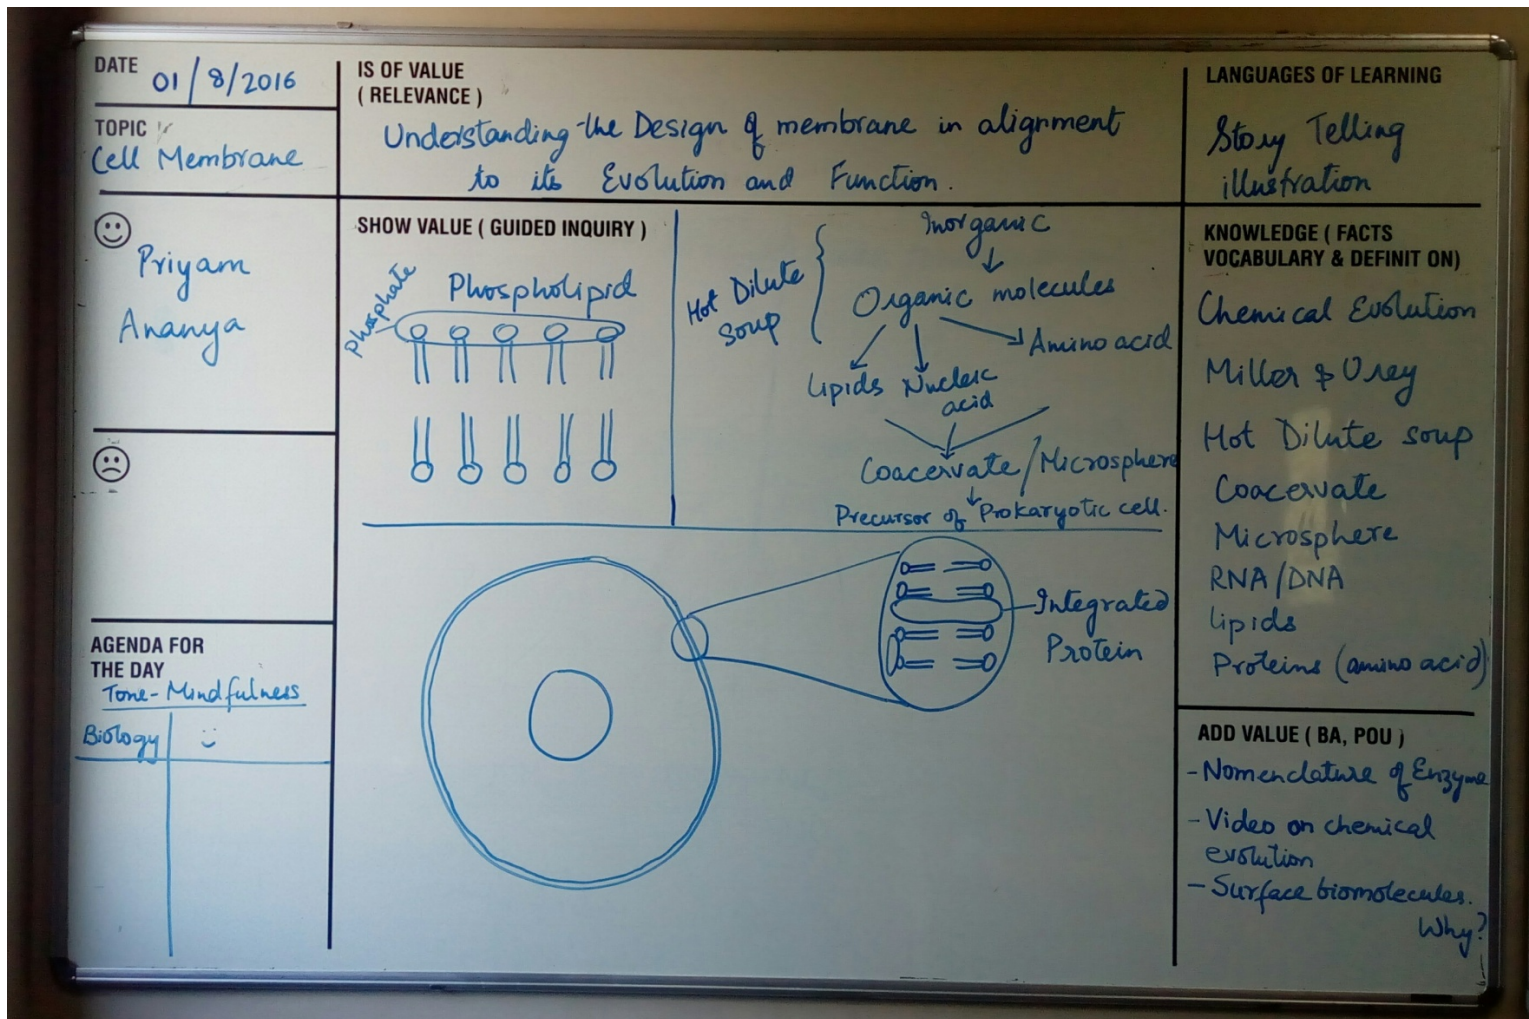 DATE
01/8/2016
TOPIC
Cell Membrane
Priyam
Ananya
AGENDA FOR
THE DAY
Tone - Mindfulness
Biology
IS OF VALUE
( RELEVANCE )
Understanding the Design of membrane in alignment
to its Evolution and Function.
SHOW VALUE ( GUIDED INQUIRY )
Phosphate
Phospholipid
Hot Dilute
soup
Inorganic
Organic molecules
Amino acid
Lipids Nucleic
acid
Coacervate / Microsphere
Precursor of Prokaryotic cell.
Integrated
Protein
LANGUAGES OF LEARNING
Story Telling
illustration
KNOWLEDGE ( FACTS
VOCABULARY & DEFINIT ON)
Chemical Evolution
Miller & Urey
Hot Dilute soup
Coacervate
Microsphere
RNA/DNA
lipids
Proteins (amino acid)
ADD VALUE ( BA, POU )
- Nomenclature of Enzyme
- Video on chemical
evolution
- Surface biomolecules.
Why?